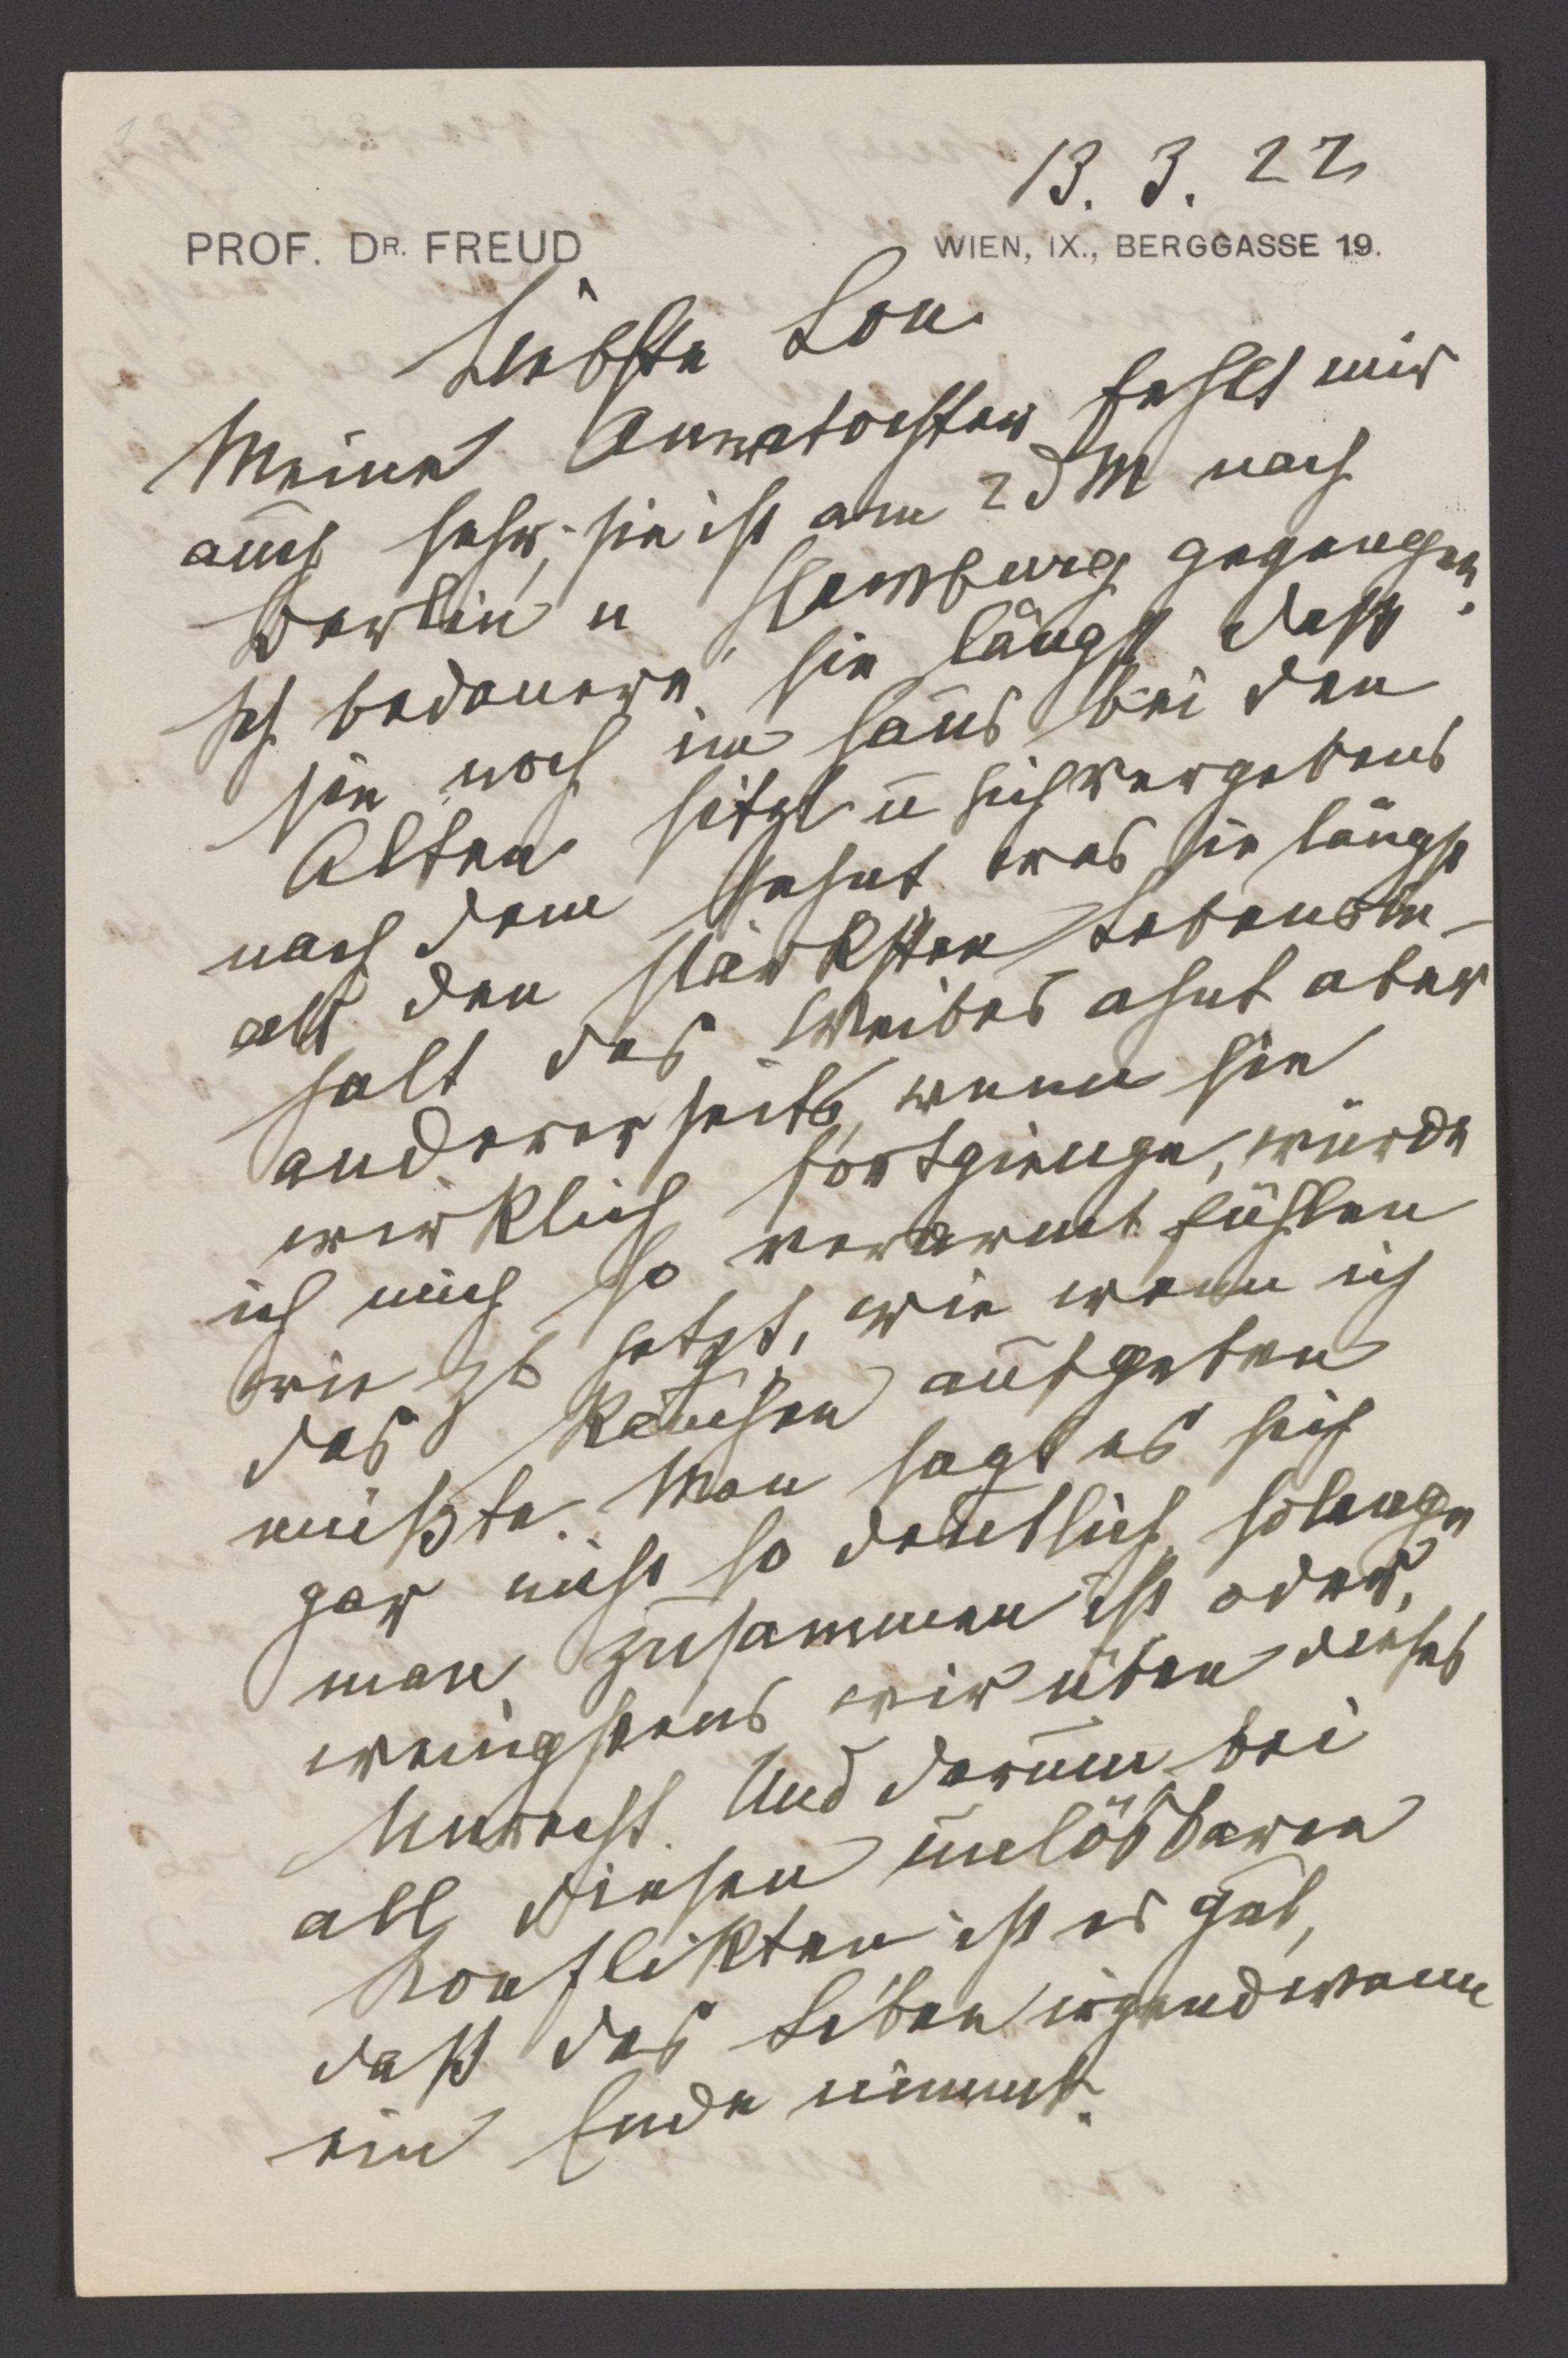 13. 3. 22
PROF. DR. FREUD WIEN, IX., BERGGASSE 19.
Liebste Lou
Meine Annatochter fehlt mir
auch sehr; sie ist am 2 d M nach
Berlin u Hamburg gegangen.
Ich bedauere sie längst daß
sie noch im Haus bei den
Alten sitzt u sich vergebens
nach dem sehnt was sie längst
als den stärksten Lebensin-
halt des Weibes ahnt aber
andererseits, wenn sie
wirklich fortgienge, würde
ich mich so verarmt fühlen
wie zb jetzt, wie wenn ich
das Rauchen aufgeben
müßte. Man sagt es sich
gar nicht so deutlich solange
man zusammen ist oder,
wenigstens wir üben dieses
Unrecht. Und darum bei
all diesen unlösbaren
Konflikten ist es gut,
daß das Leben irgendwann
ein Ende nimmt.